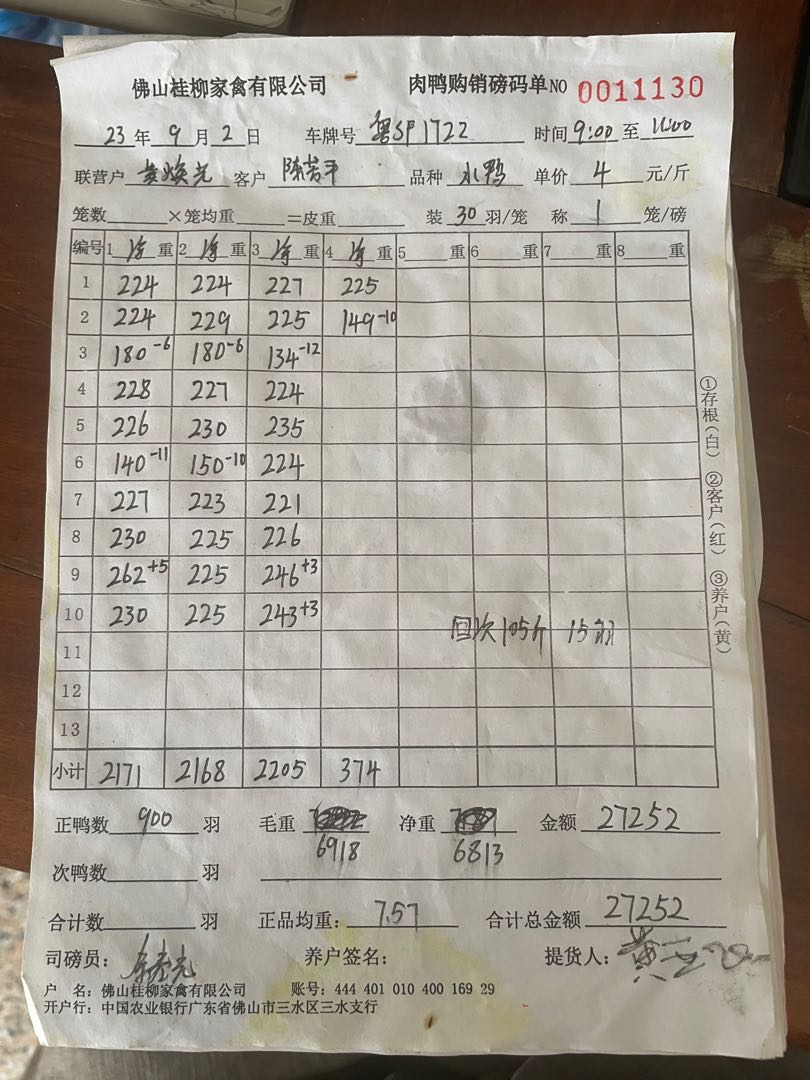 佛山桂柳家禽有限公司 肉鸭购销磅码单NO 0011130
23年9月2日 车牌号 粤SP1722 时间9:00至11:00
联营户 黄焕光 客户 陈芳平 品种 水鸭 单价 4 元/斤
笼数 ×笼均重 =皮重 装30羽/笼 称 1 笼/磅
编号 1净重 2净重 3净重 4净重 5 重 6 重 7 重 8 重
1 224 224 227 225
2 224 229 225 149-10
3 180-6 180-6 134-12
4 228 227 224
5 226 230 235
6 140-11 150-10 224
7 227 223 221
8 230 225 226
9 262+5 225 246+3
10 230 225 243+3
回次105斤 15羽
11
12
13
小计 2171 2168 2205 374
正鸭数 900 羽 毛重 6918 净重 6813 金额 27252
次鸭数 羽
合计数 羽 正品均重: 7.57 合计总金额 27252
司磅员: 养户签名: 提货人: 黄
户 名: 佛山桂柳家禽有限公司 账号: 444 401 010 400 169 29
开户行: 中国农业银行广东省佛山市三水区三水支行
①存根(白) ②客户(红) ③养户(黄)